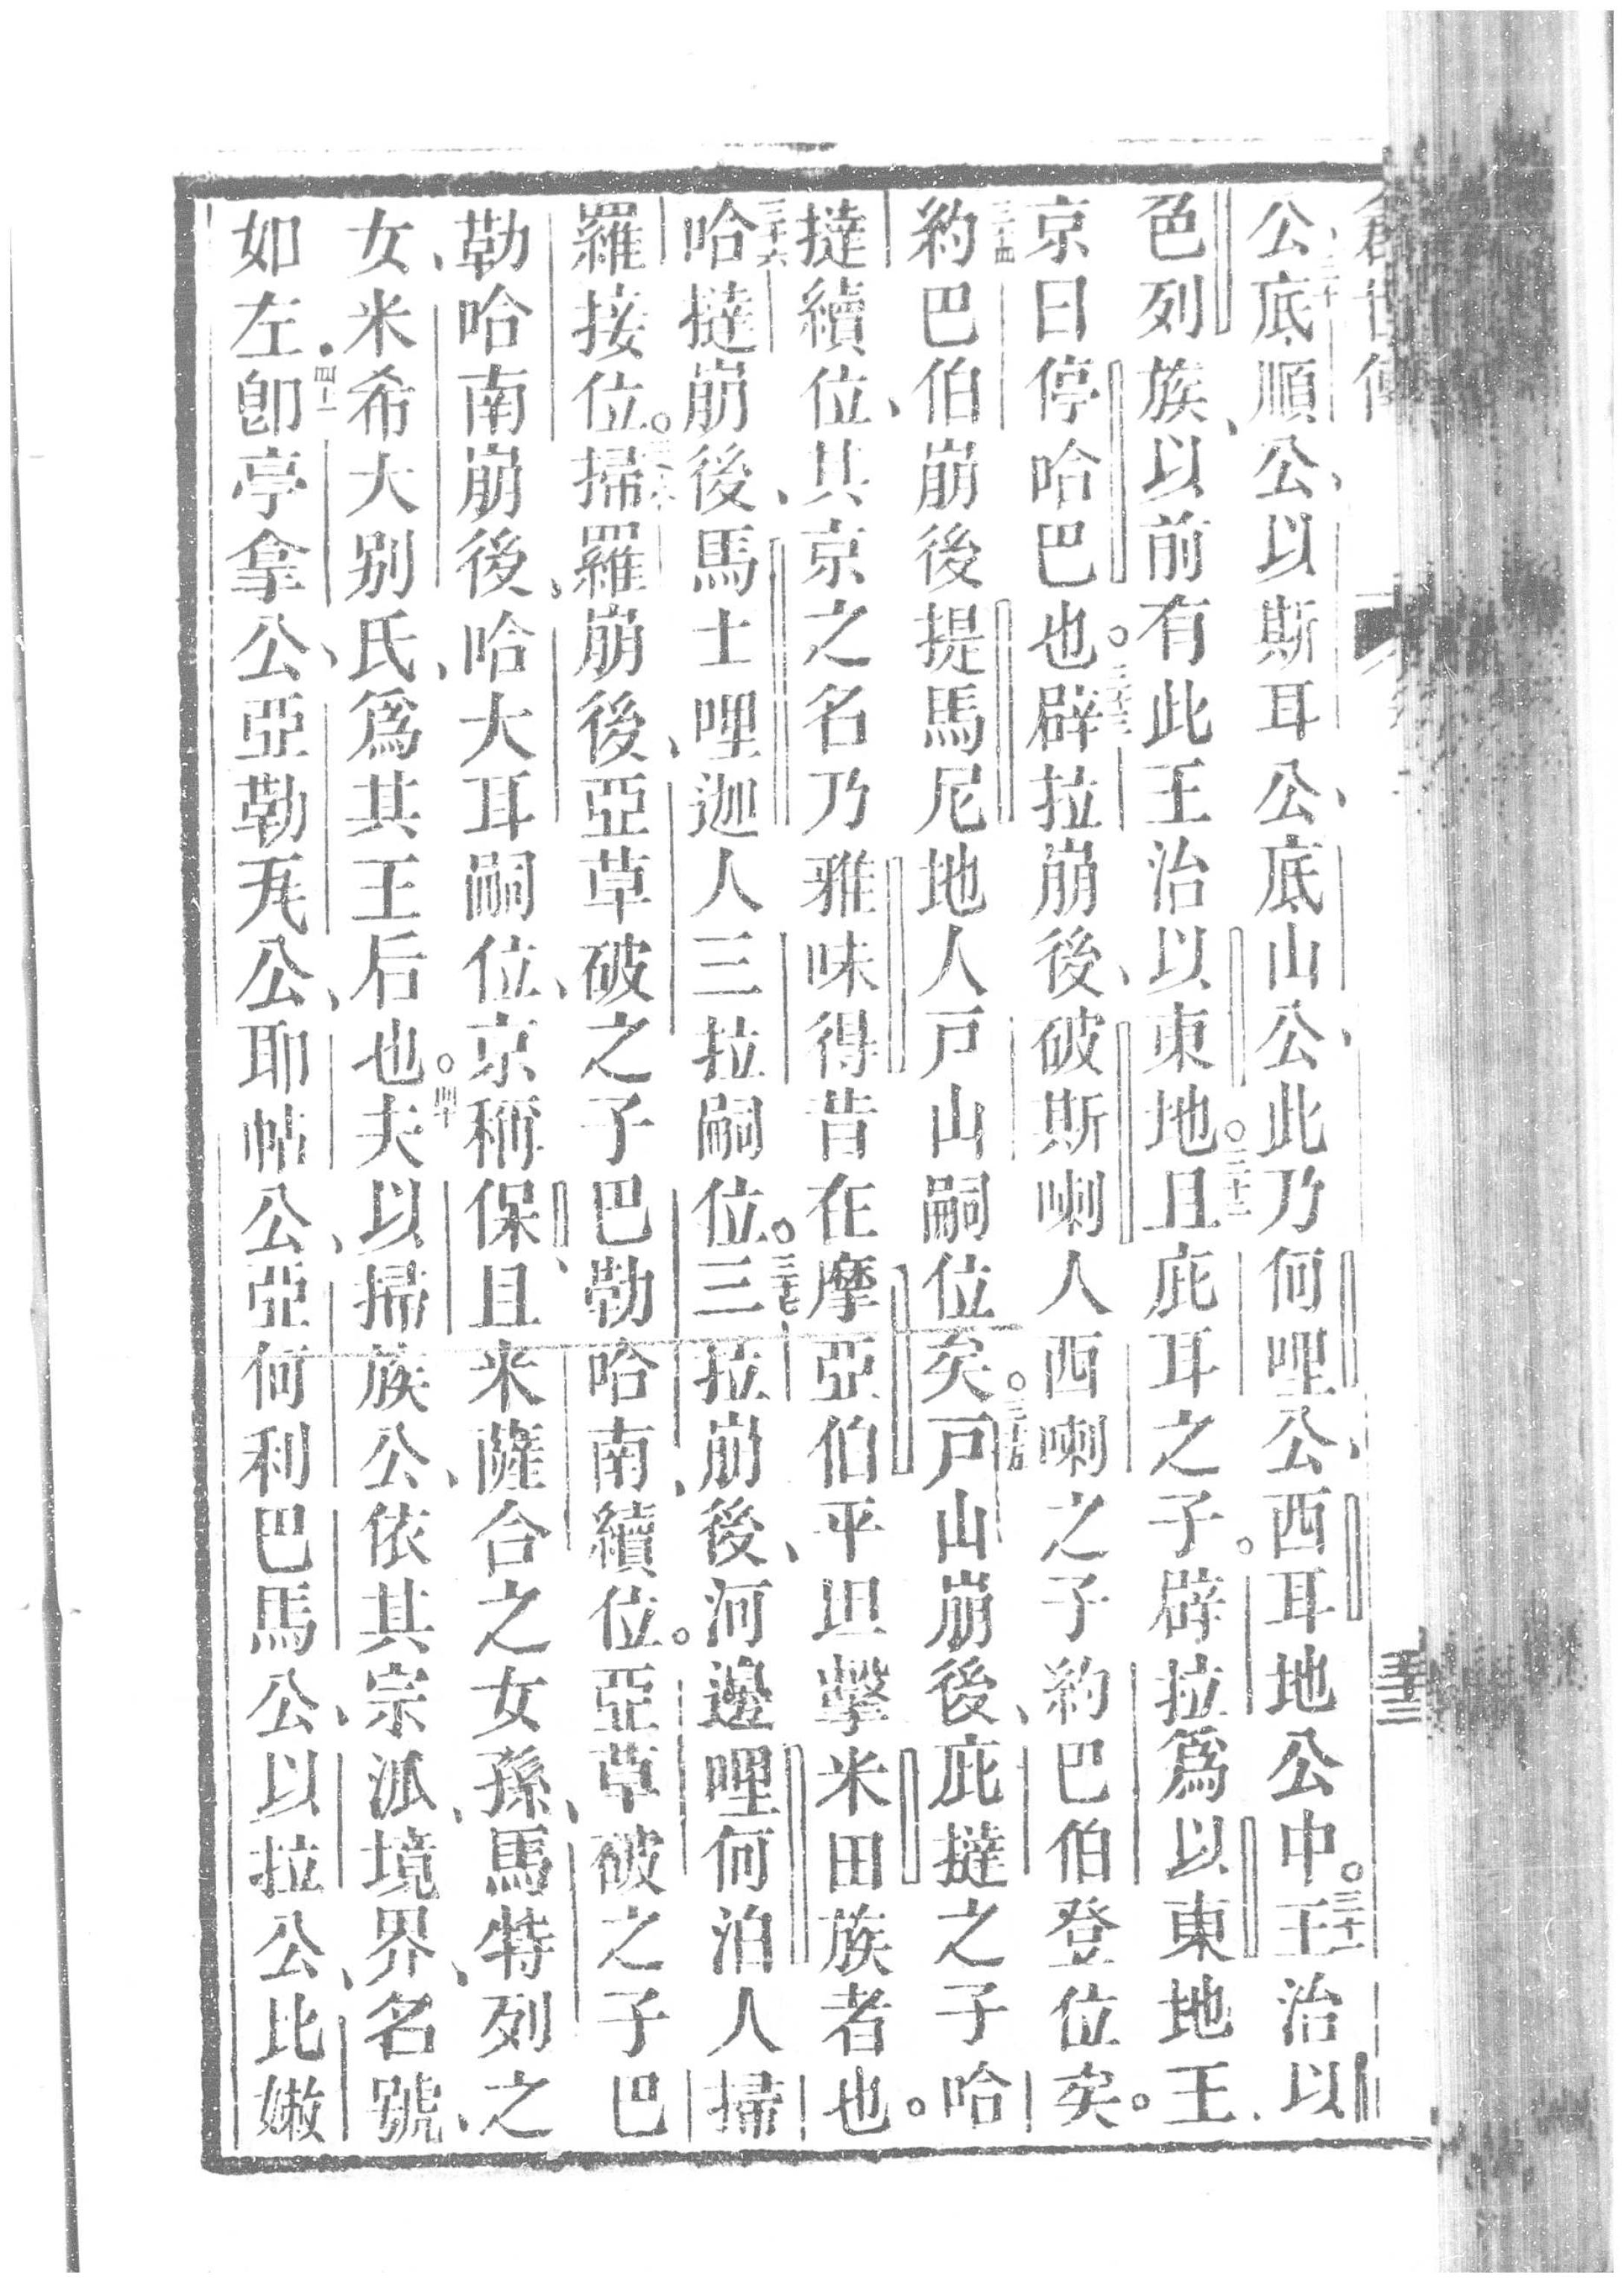 公、三十底順公、以斯耳公、底山公、此乃何哩公、西耳地公中。三十一王治以
色列族、以前有此王治以東地。三十二且庇耳之子。辟拉爲以東地王、
京曰停哈巴也。三十三辟拉崩後、破斯喇人西喇之子約巴伯登位矣。
三十四約巴伯崩後提馬尼地人戸山嗣位矣。三十五戸山崩後、庇撻之子哈
撻續位、其京之名乃雅味得昔在摩亞伯平坦擊米田族者也。
三十六哈撻崩後、馬士哩迦人三拉嗣位。三十七三拉崩後、河邊哩何泊人掃
羅接位。三十八掃羅崩後、亞草破之子巴勒哈南、續位。亞草破之子巴
勒哈南崩後、哈大耳嗣位、京稱保、且米薩合之女孫、馬特列之
女、米希大別氏、爲其王后也。四十夫以掃族公、依其宗派、境界、名號、
如左四十一卽亭拿公、亞勒𠀾公、耶帖公、亞何利巴馬公、以拉公、比嫩